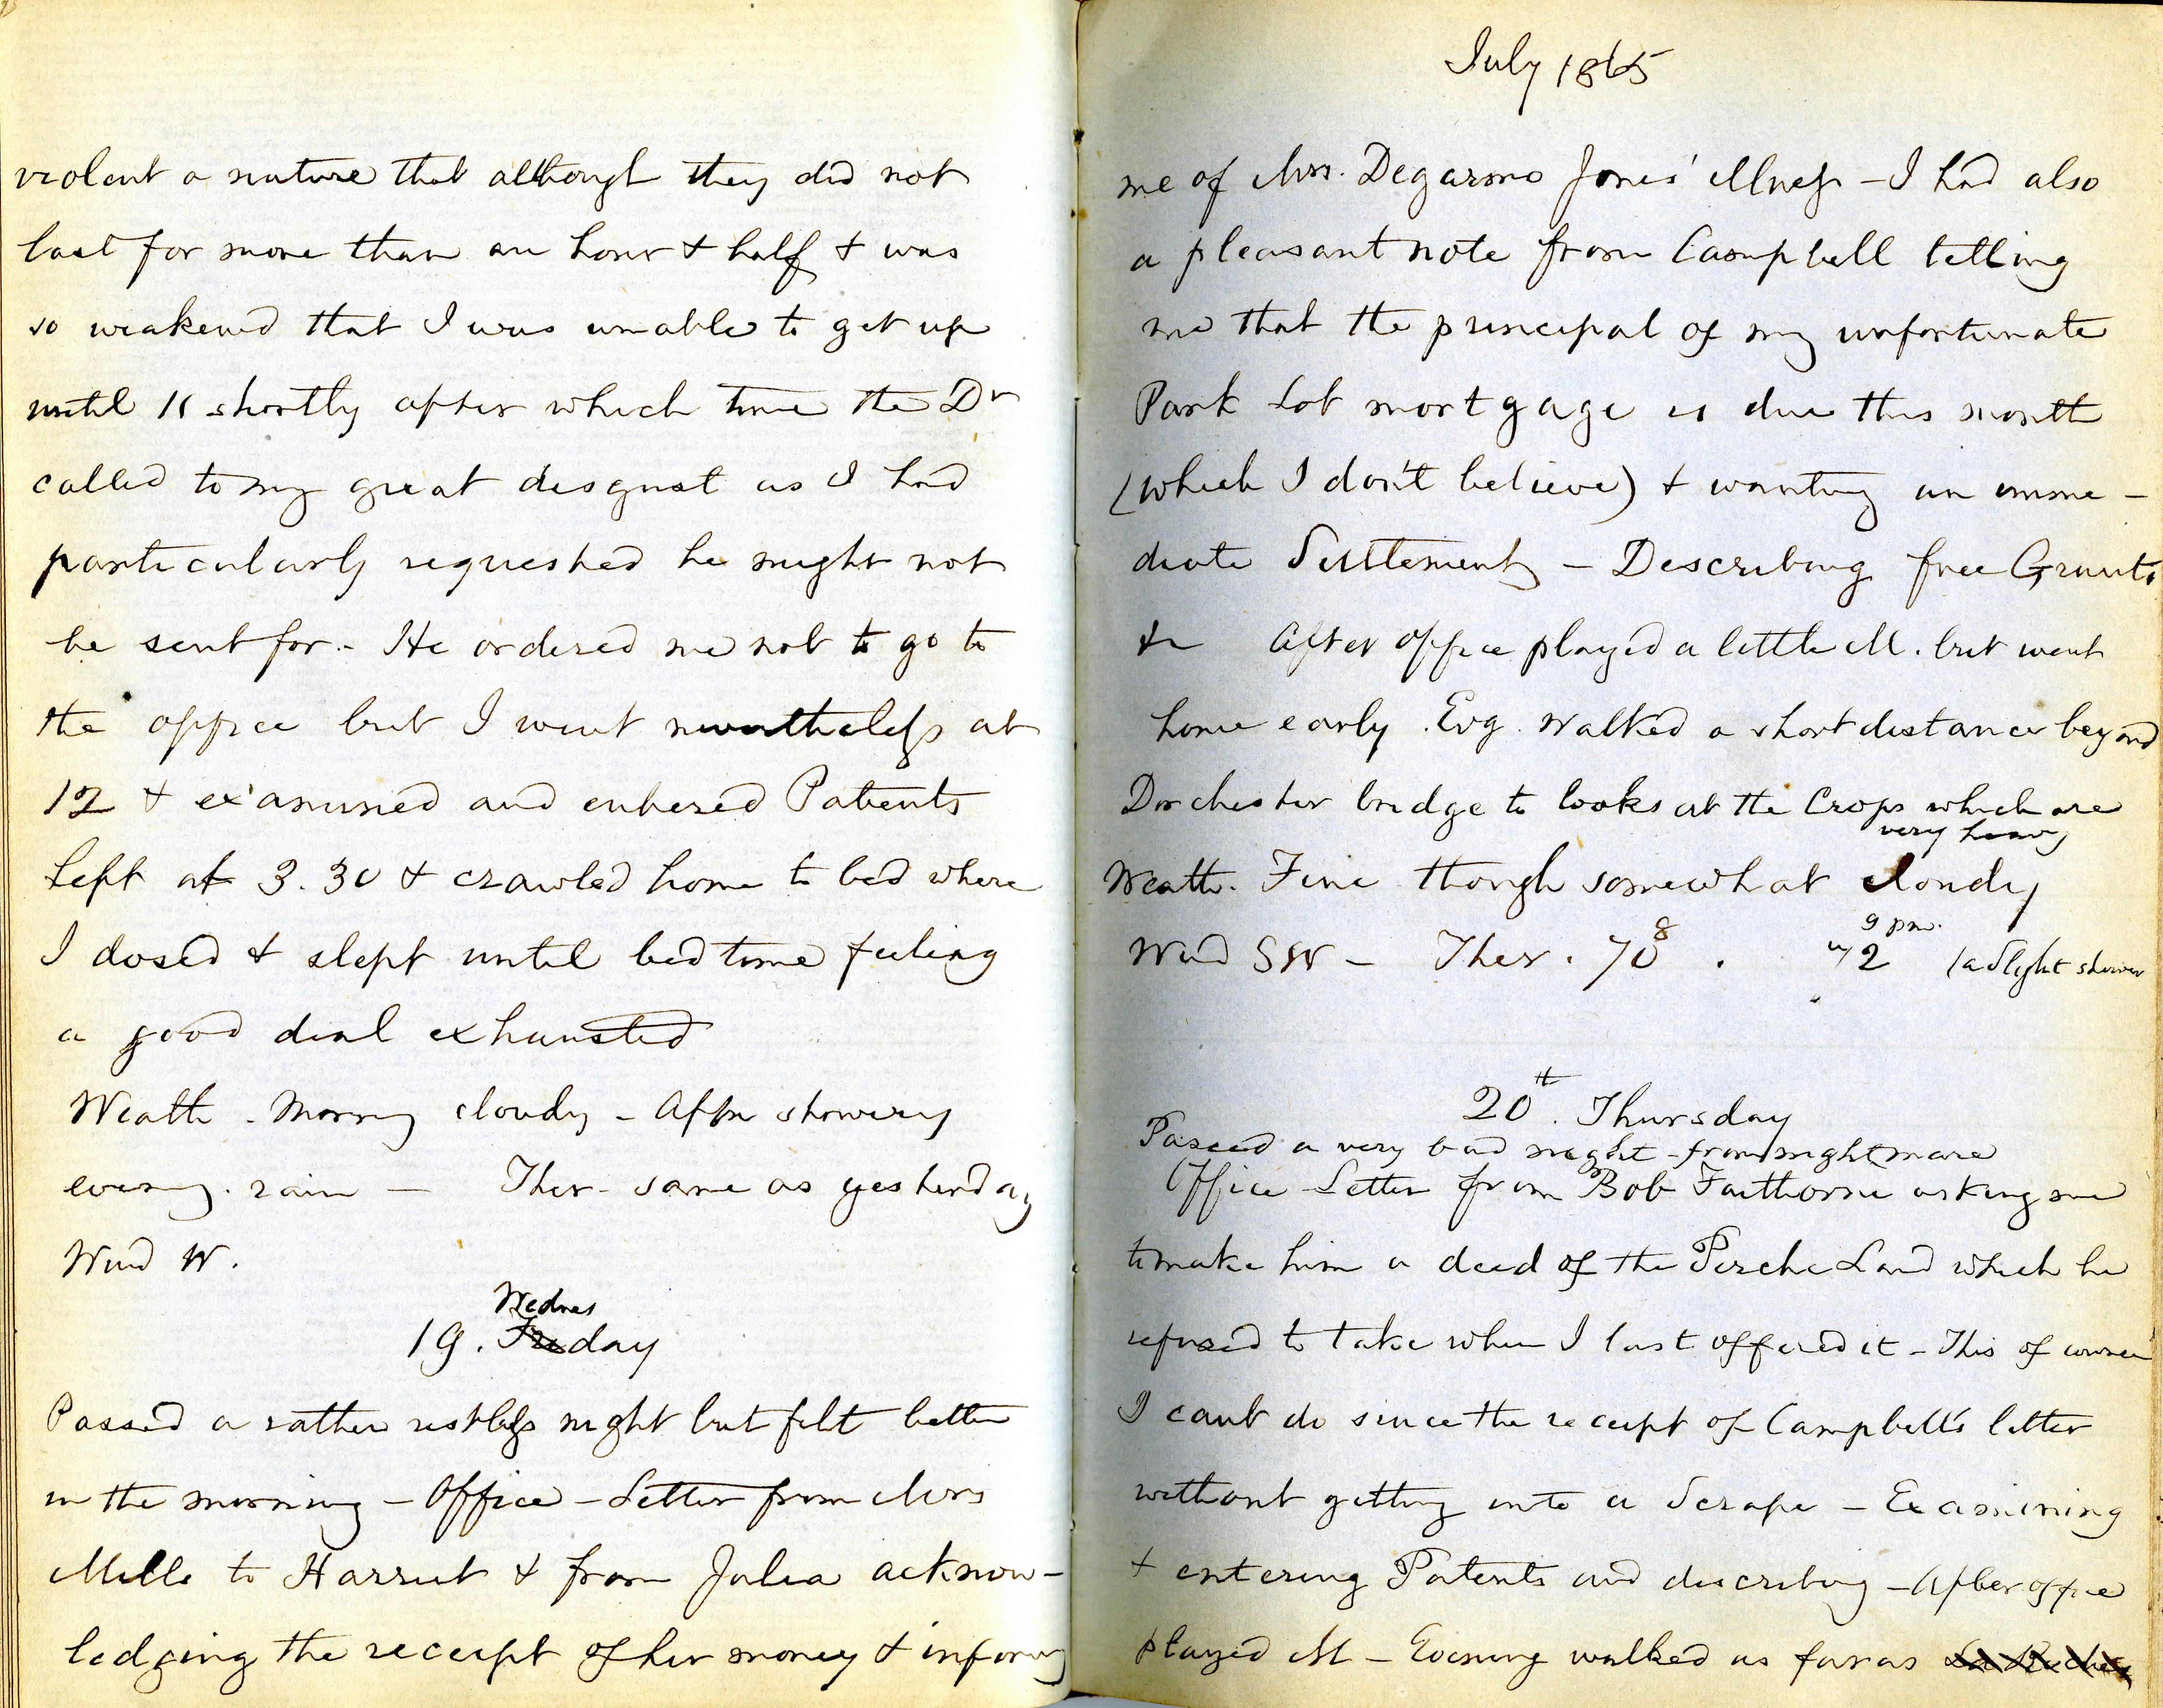 violent a nature that although they did not
last for more than an hour + half + was
so weakened that I was unable to get up
until 11 shortly after which time the Dr
called to my great disgust as I had
particularly requested he might not
be sent for.- He ordered me not to go to
the office but I went nevertheless at
12 + examined and entered Patents
Left at 3.30 + crawled home to bed where
I dosed + slept until bed time feeling
a good deal exhausted
Weath - Morng cloudy - Aftn showery
eveng. rain — Ther - same as yesterday
Wind W.
Wednes
19. Friday
Passed a rather restless night but felt better
in the morning - Office - Letter from Mrs
Mills to Harriet + from Julia acknow-
ledging the receipt of her money + informg
July 1865
me of Mrs. Degarmo Jones' illness - I had also
a pleasant note from Campbell telling
me that the principal of my unfortunate
Park Lot mortgage is due this month
(which I don't believe) + wanting an imme-
diate Settlement - Describing free Grants
&c After office played a little M. but went
home early. Evg. Walked a short distance beyond
Dorchester bridge to looks at the Crops which are
very heavy
Weath. Fine though somewhat cloudy
Wind SW - Ther. 70 8. 72 9 pm. (a slight shower
20th. Thursday
Passed a very bad night - from nightmare
Office - Letter from Bob Faithorne asking me
to make him a deed of the Perche Land which he
refused to take when I last offered it - This of course
I cant do since the receipt of Campbell's letter
without getting into a Scrape - Examining
+ entering Patents and describing - After office
played M - Evening walked as far as